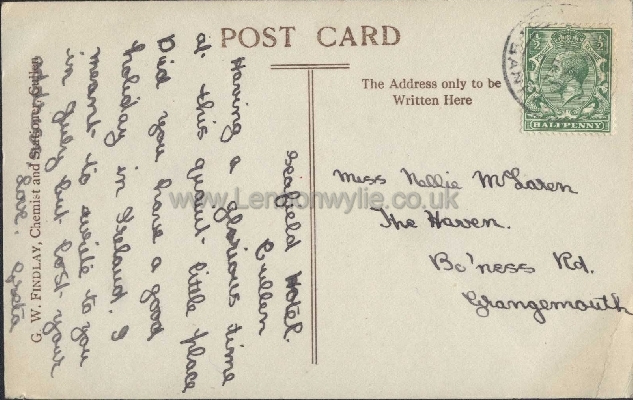 POST CARD
The Address only to be
Written Here
HALFPENNY
BANFF
Miss Nellie McLaren
The Haven.
Bo'ness Rd.
Grangemouth
Seafield Hotel.
Cullen
Having a glorious time
at this quaint little place
Did you have a good
holiday in Ireland. I
meant to write to you
in July but lost your
Love. Greta
G. W. FINDLAY, Chemist and Stationer, Cullen
www.Lennonwylie.co.uk